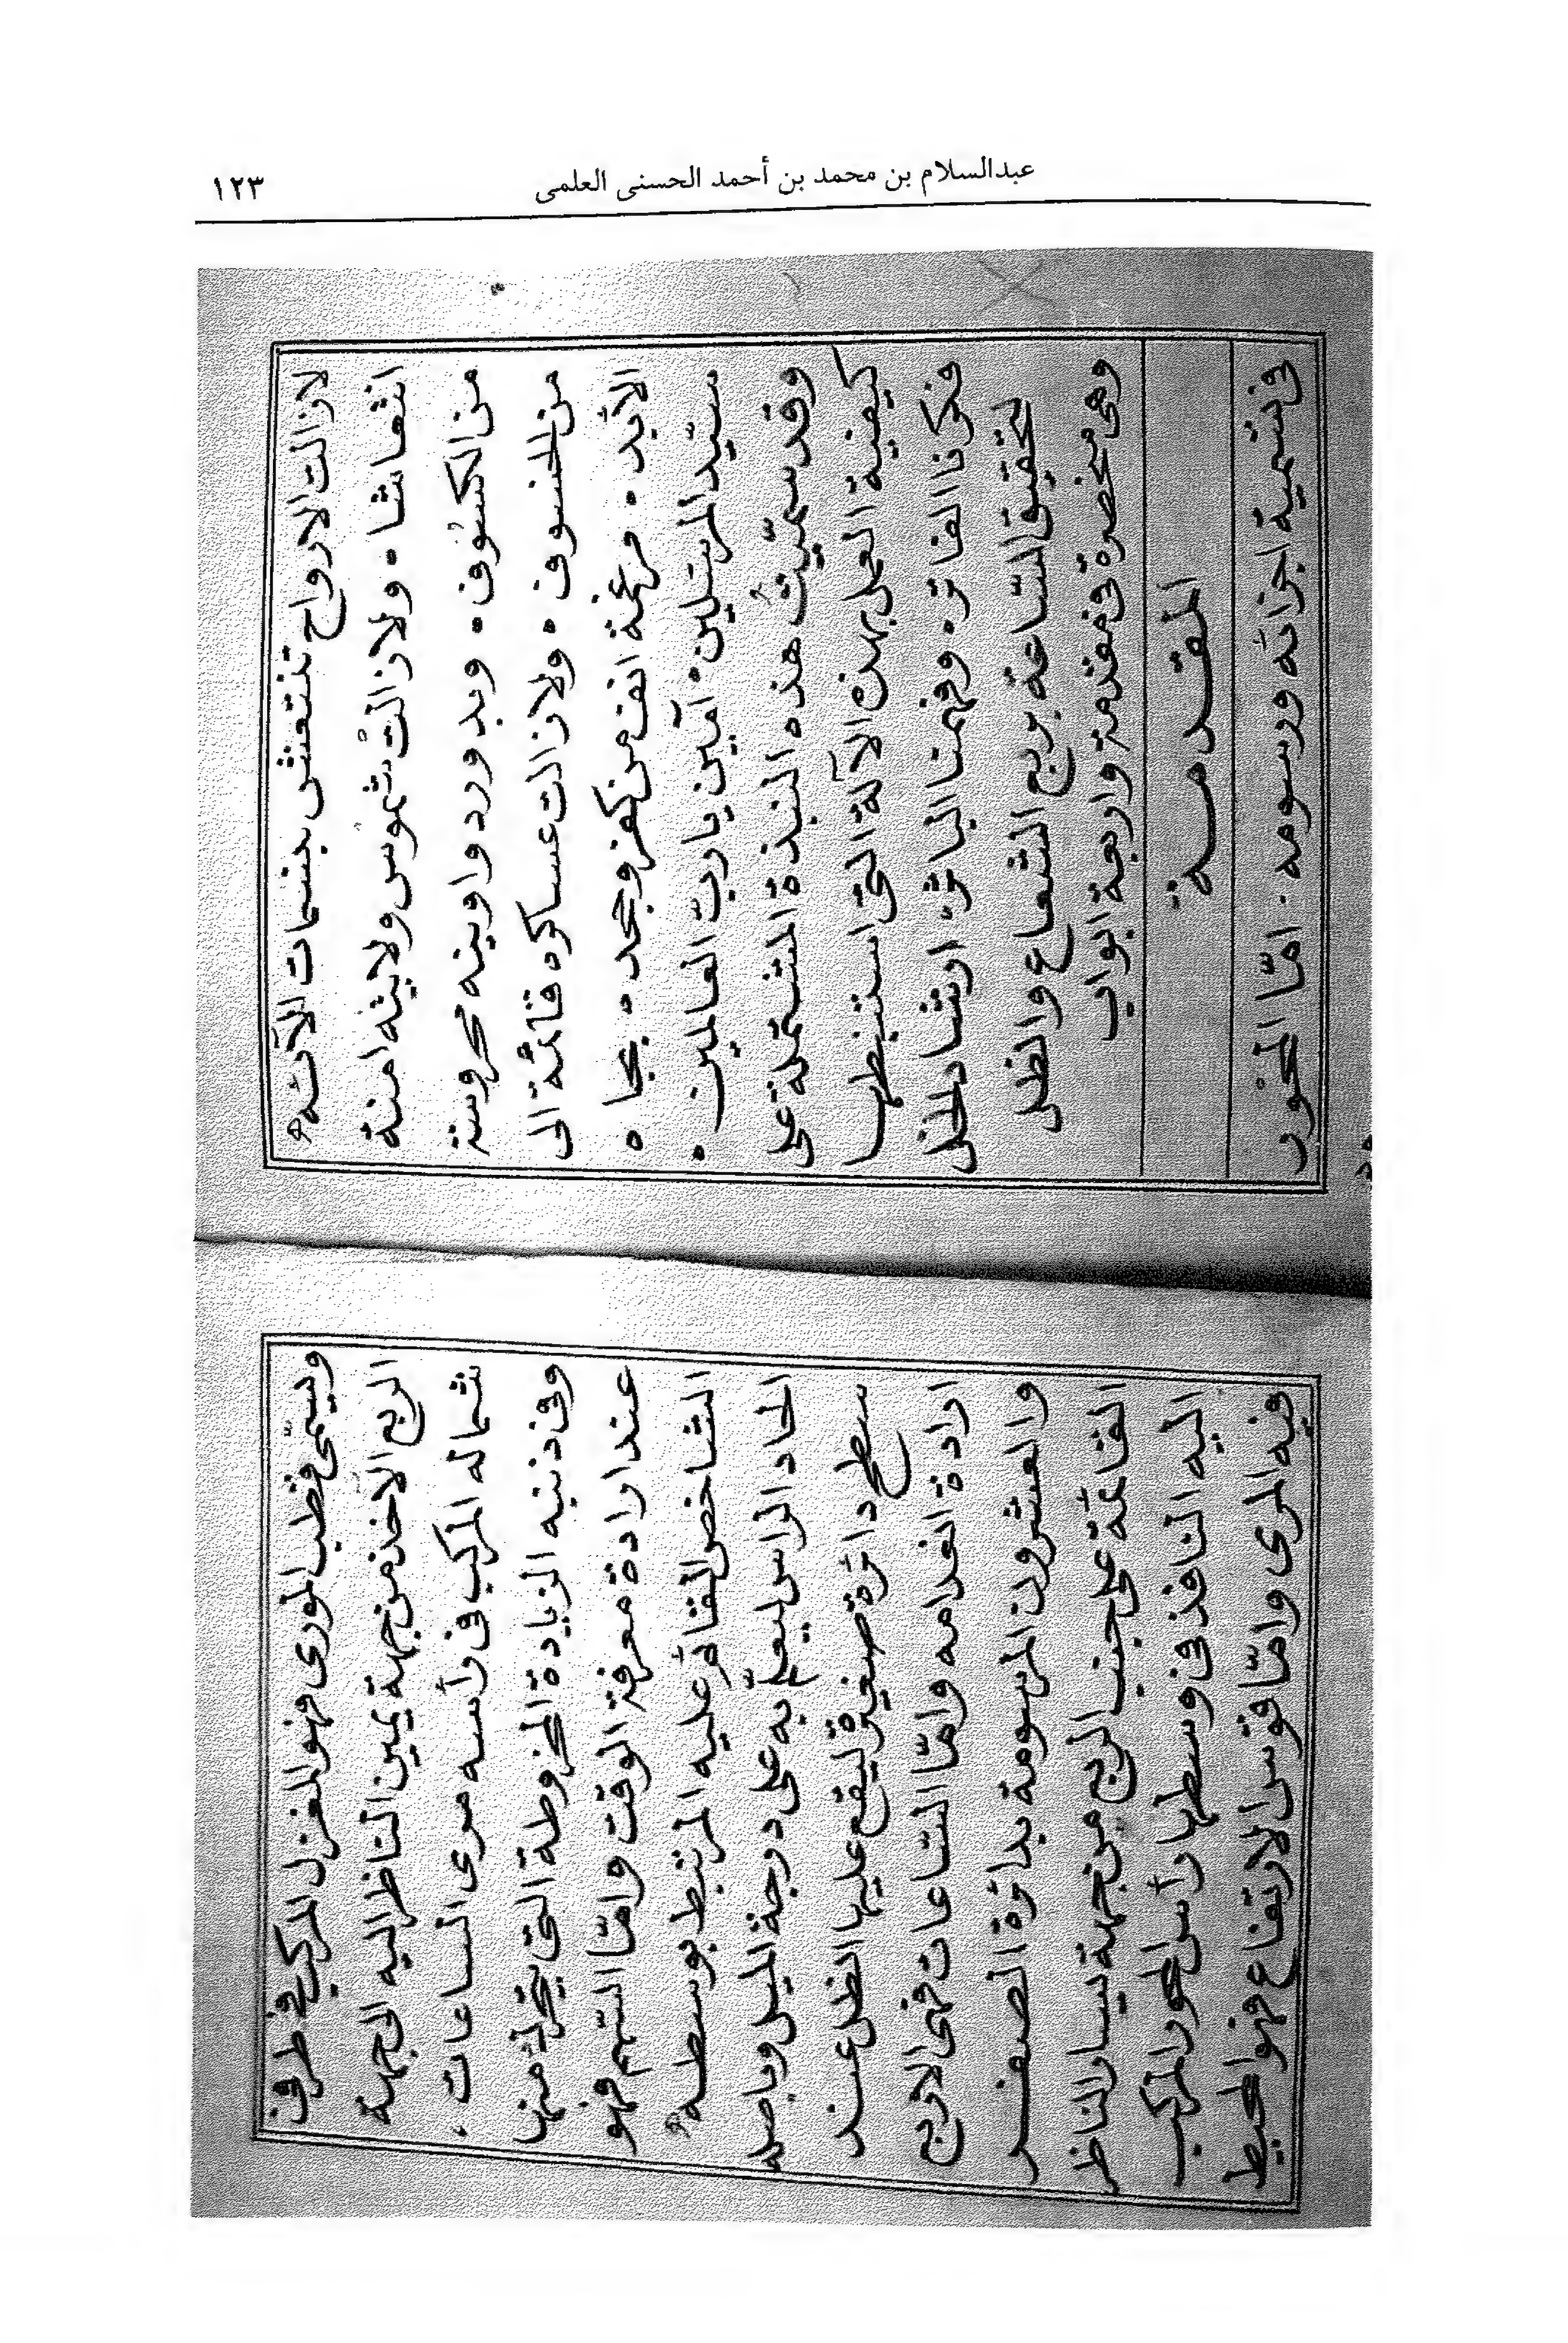 عبدالسلام بن محمد بن أحمد الحسنى العلمى
١٢٣
لازالت الارواح تنتعش بنسمات الآئه
انتعاشا ٠ ولازالت شموس ولايته امنة
من الكسوف ٠ وبدور دواوينه محروسة
من الخسوف ٠ ولازالت عساكره قائمة الى
الابد ٠ مرغمة انف من كفر وجحد ٠ بجاه
سيد المرسلين ٠ آمين يا ربّ العالمين ٠
وقد سمّيت هذه النبذة المشتملة على
كيفية العمل بهذه الآلة التى استنبطها
فكرنا الفاتر ٠ وفهمنا الباتر ارشاد الخل
لتحقيق السّاعة بربع الشعاع والظل
وهى منحصرة فى مقدمة واربعة ابواب
المقدمة
فى تسمية اجزائه ورسومه ٠ امّا المحور
ويسمّى قطب المورى فهو المغزل المركب فى طرف
الربع الاخذ من جهة يمين الناظر اليه الى جهة
شماله المركب فى رأسه مورى الساعات
وفى ذنبه الزيادة المخروطة التى يتحرك منها
عند ارادة معرفة الوقت وامّا السّهم فهو
الشاخص القائم عليه المرتبط بوسطه
الحاد الراس ليعلّم به على درجة الميل وباصله
سطح دائرة صغيرة ليقع عليها الظل عند
ارادة انعدامه وامّا السّاعات فهى الاربع
والعشرون المرسومة بدائرة الصفر
القائمة على جنب الربع من جهة يسار الناظر
اليه النافذ فى وسطها رأس المحور المركب
فيه المرى وامّا قوس الارتفاع فهو المحيط